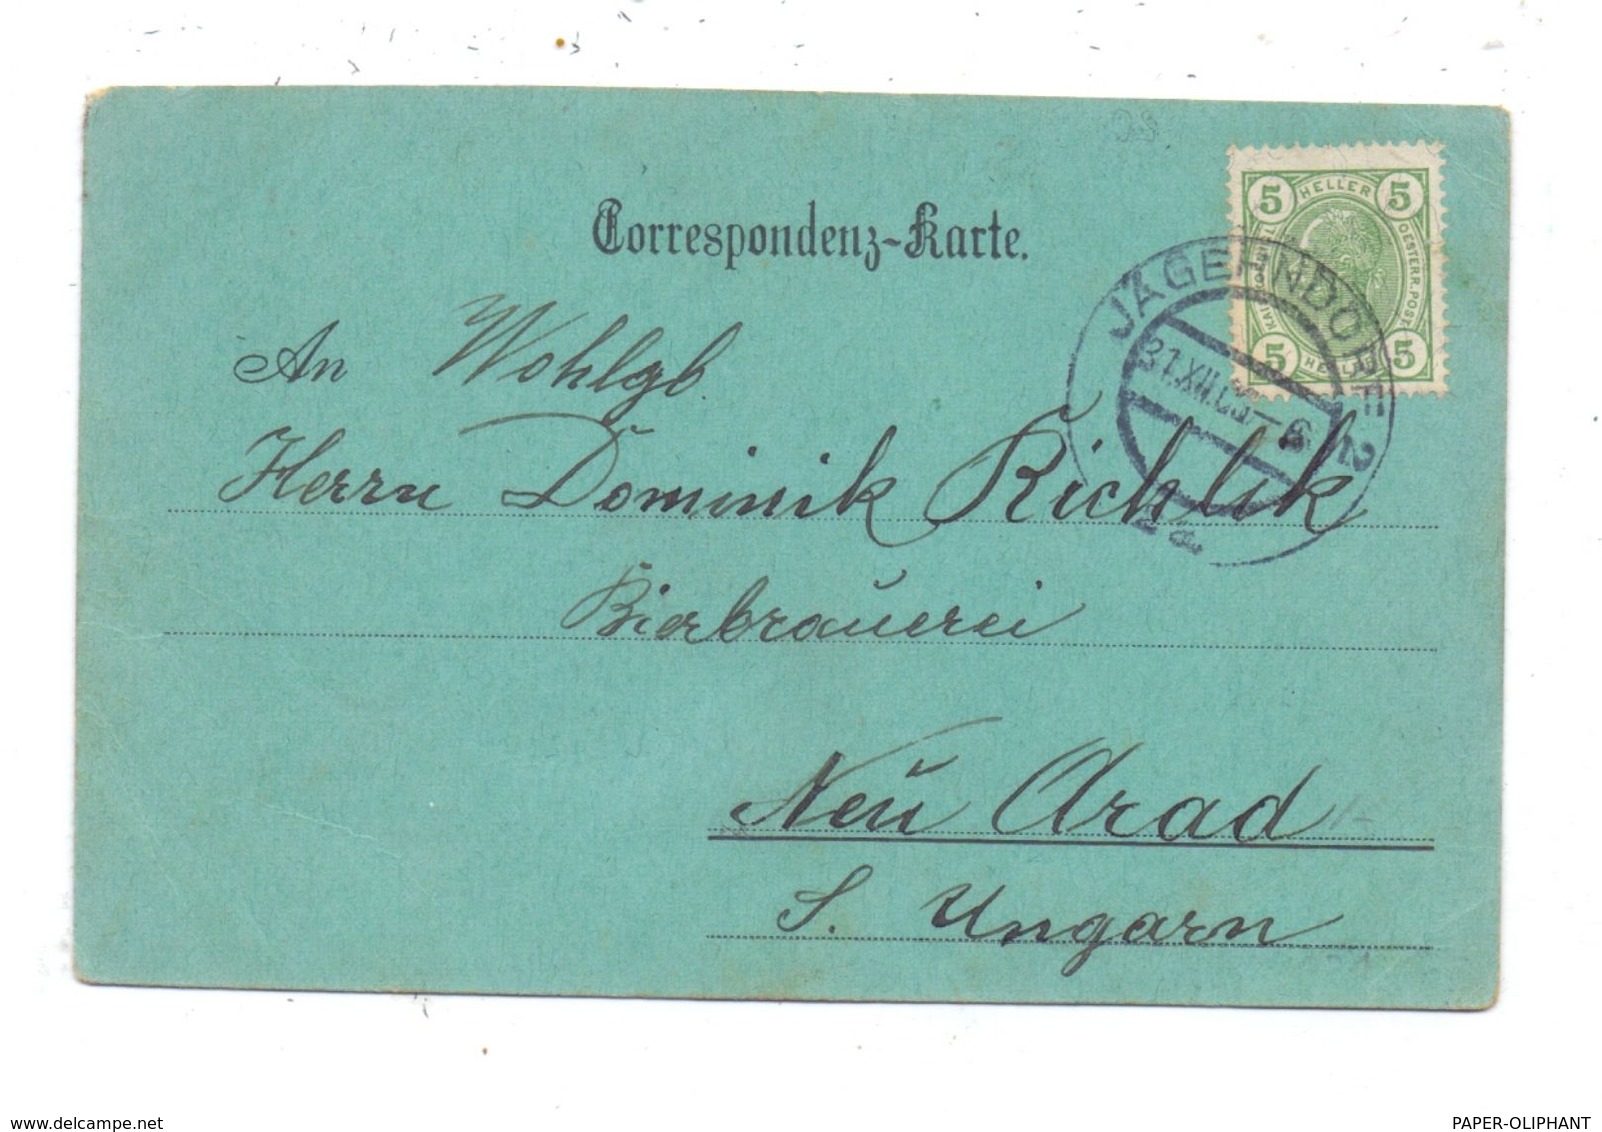 Correspondenz-Karte.
5 HELLER 5
OESTERR. POST
5 HELLER 5
JÄGERNDORF 2
31.XII.
6
An Wohlgb.
Herrn Dominik Richlik
Bierbrauerei
Neu Arad
S. Ungarn
www.delcampe.net
PAPER-OLIPHANT